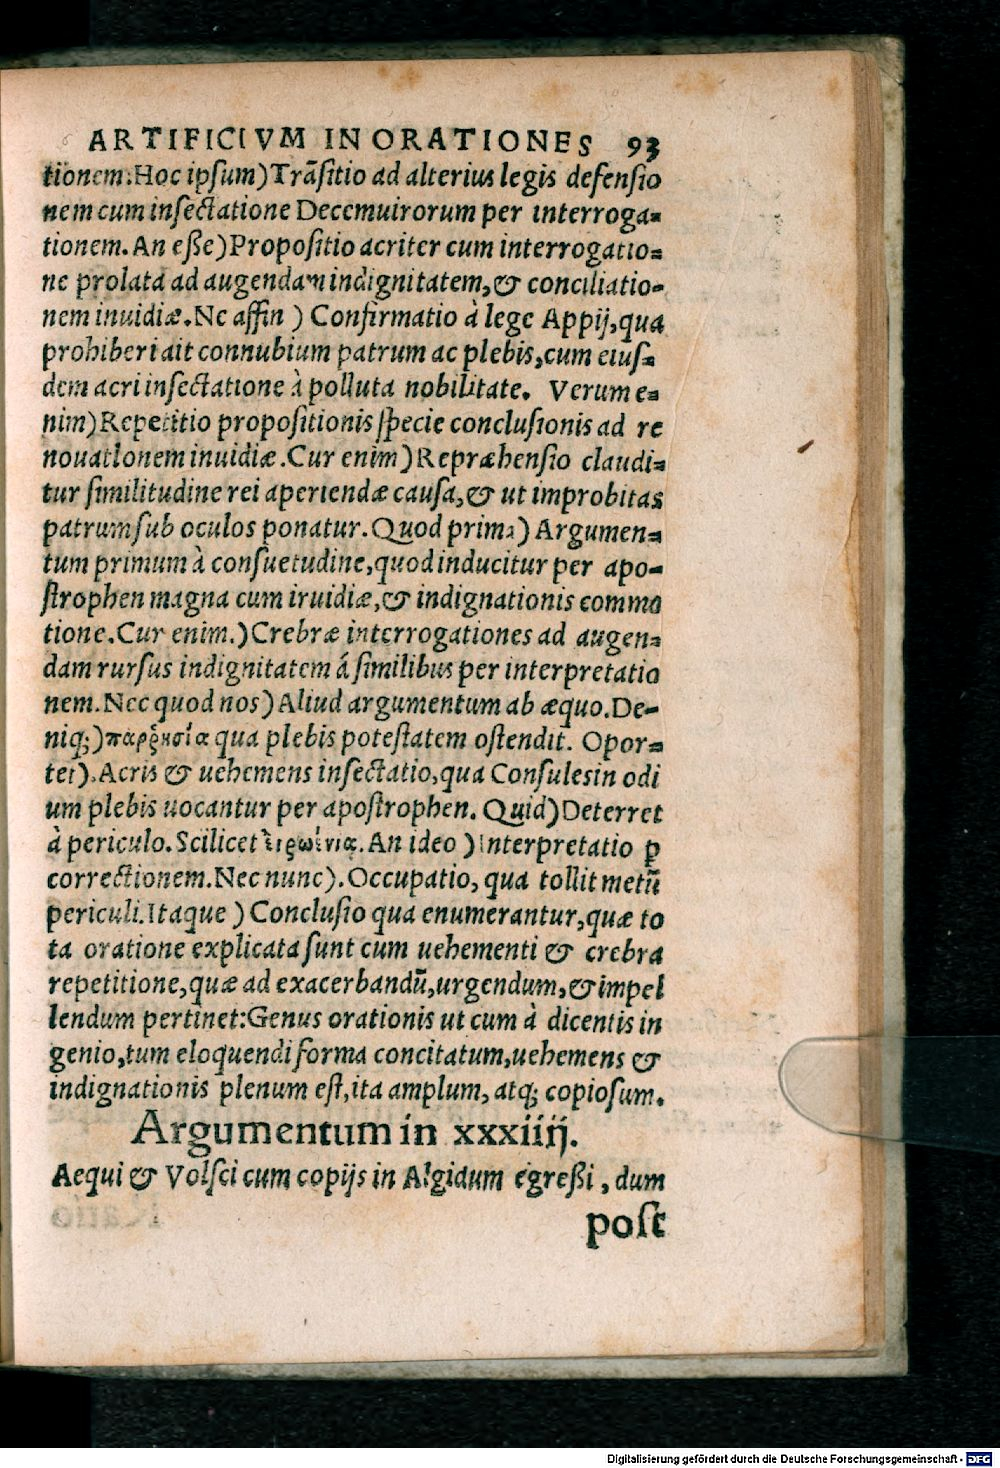 ARTIFICIVM IN ORATIONES 93
tionem: Hoc ipsum) Trãsitio ad alterius legis defensio
nem cum insectatione Decemuirorum per interroga=
tionem. An eße) Propositio acriter cum interrogatio=
ne prolata ad augendam indignitatem, & conciliatio=
nem inuidiæ. Ne affin ) Confirmatio à lege Appij, qua
prohiberi ait connubium patrum ac plebis, cum eius=
dem acri insectatione à polluta nobilitate. Verum e=
nim) Repetitio propositionis specie conclusionis ad re
nouationem inuidiæ. Cur enim) Repræhensio claudi=
tur similitudine rei aperiendæ causa, & ut improbitas
patrum sub oculos ponatur. Quod prima) Argumen=
tum primum à consuetudine, quod inducitur per apo=
strophen magna cum iruidiæ, & indignationis commo
tione. Cur enim.) Crebræ interrogationes ad augen=
dam rursus indignitatem á similibus per interpretatio
nem. Nec quod nos) Aliud argumentum ab æquo. De=
niq;) παῤῥησία qua plebis potestatem ostendit. Opor=
tet). Acris & uehemens insectatio, qua Consules in odi
um plebis uocantur per apostrophen. Quid) Deterret
à periculo. Scilicet εἰρωνεία. An ideo ) Interpretatio ꝑ
correctionem. Nec nunc). Occupatio, qua tollit metũ
periculi. Itaque ) Conclusio qua enumerantur, quæ to
ta oratione explicata sunt cum uehementi & crebra
repetitione, quæ ad exacerbandũ, urgendum, & impel
lendum pertinet: Genus orationis ut cum à dicentis in
genio, tum eloquendi forma concitatum, uehemens &
indignationis plenum est, ita amplum, atq; copiosum.
Argumentum in xxxiiij.
Aequi & Volsci cum copijs in Algidum egreßi, dum
post
Digitalisierung gefördert durch die Deutsche Forschungsgemeinschaft - DFG